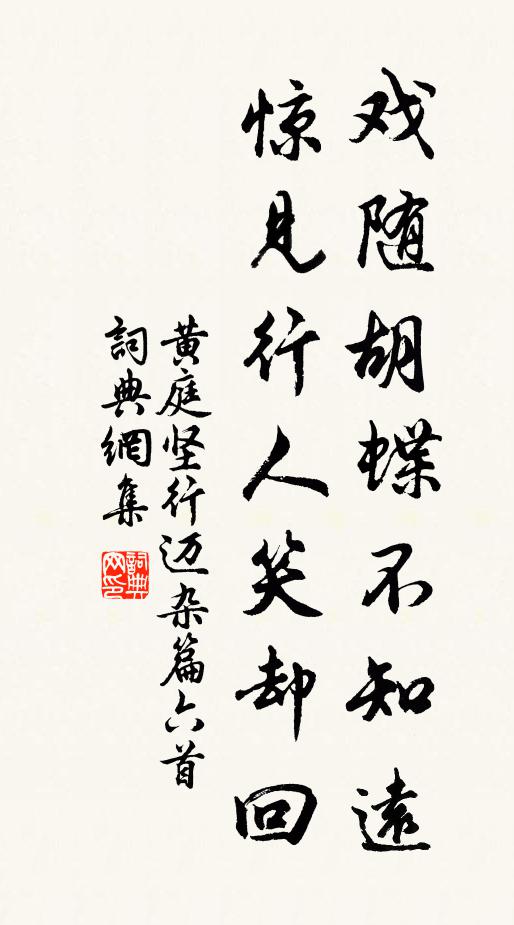 戏随胡蝶不知遠
惊见行人笑却回
黄庭坚行迈杂篇六首
詞典網集
詞典
网印